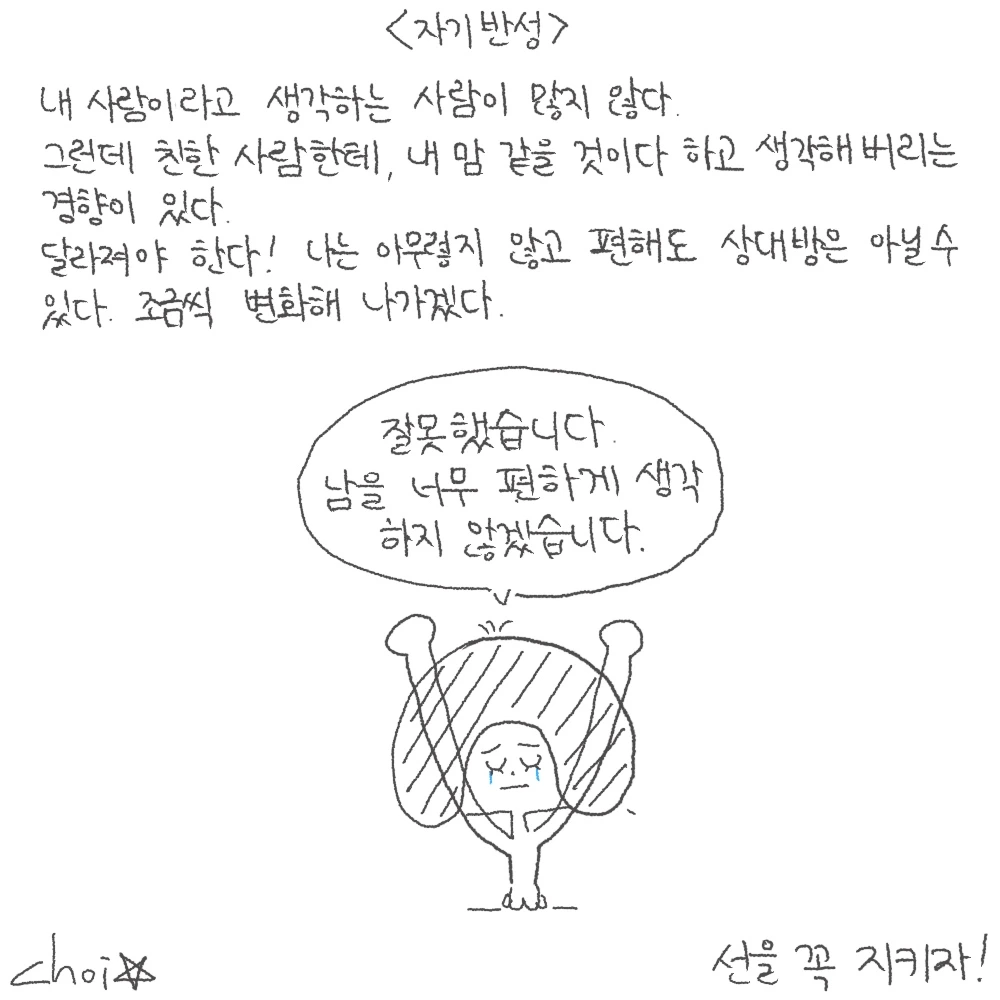 <자기반성>
내 사람이라고 생각하는 사람이 많지 않다.
그런데 친한 사람한테, 내 맘 같을 것이다 하고 생각해버리는
경향이 있다.
달라져야 한다! 나는 아무렇지 않고 편해도 상대방은 아닐 수
있다. 조금씩 변화해 나가겠다.
잘못했습니다.
남을 너무 편하게 생각
하지 않겠습니다.
choi
선을 꼭 지키자!